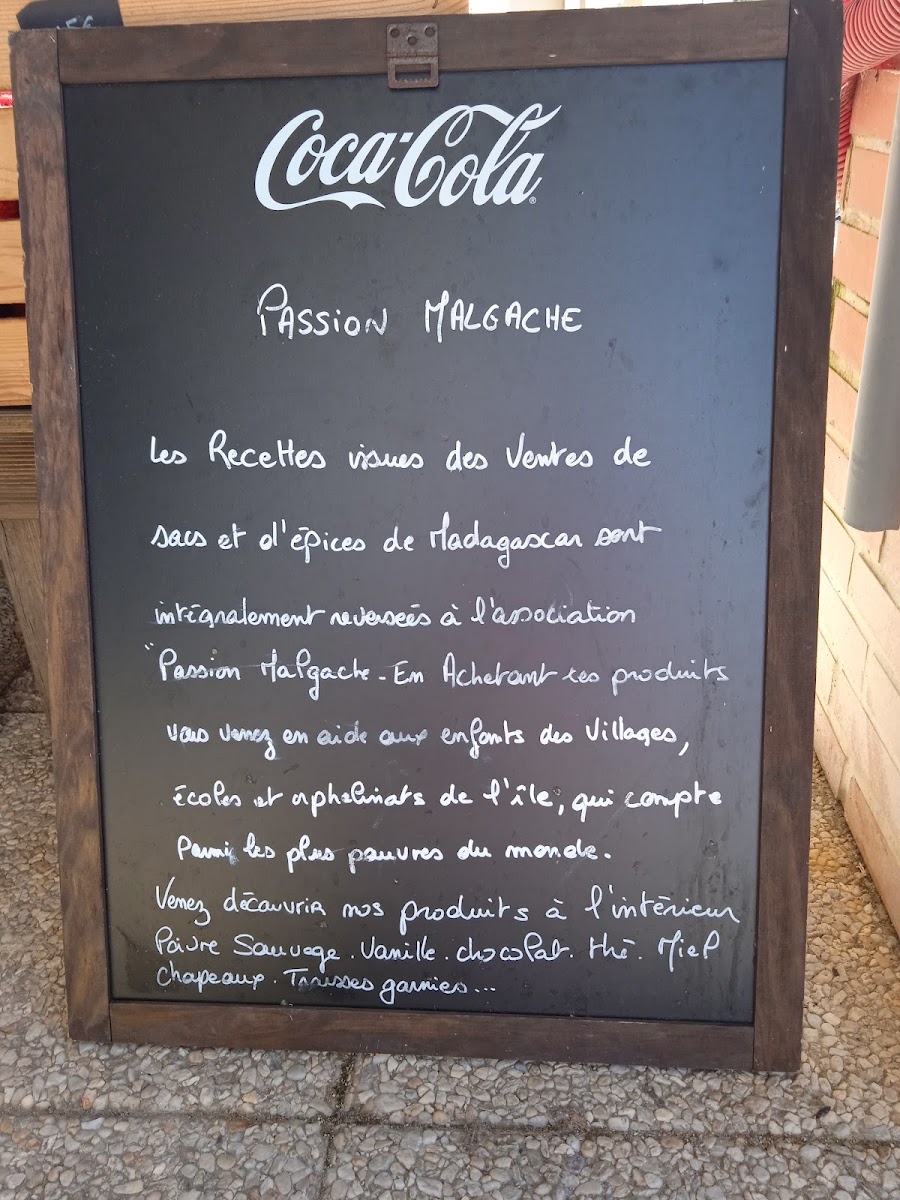 Coca-Cola
PASSION MALGACHE
Les Recettes issues des Ventes de
sacs et d'épices de Madagascar sont
intégralement reversées à l'association
"Passion Malgache - En Achetant ces produits
vous venez en aide aux enfants des villages,
écoles et orphelinats de l'île, qui compte
parmi les plus pauvres du monde.
Venez découvrir nos produits à l'intérieur
Poivre Sauvage . Vanille . chocolat . thé . Miel
Chapeaux . Trousses garnies...